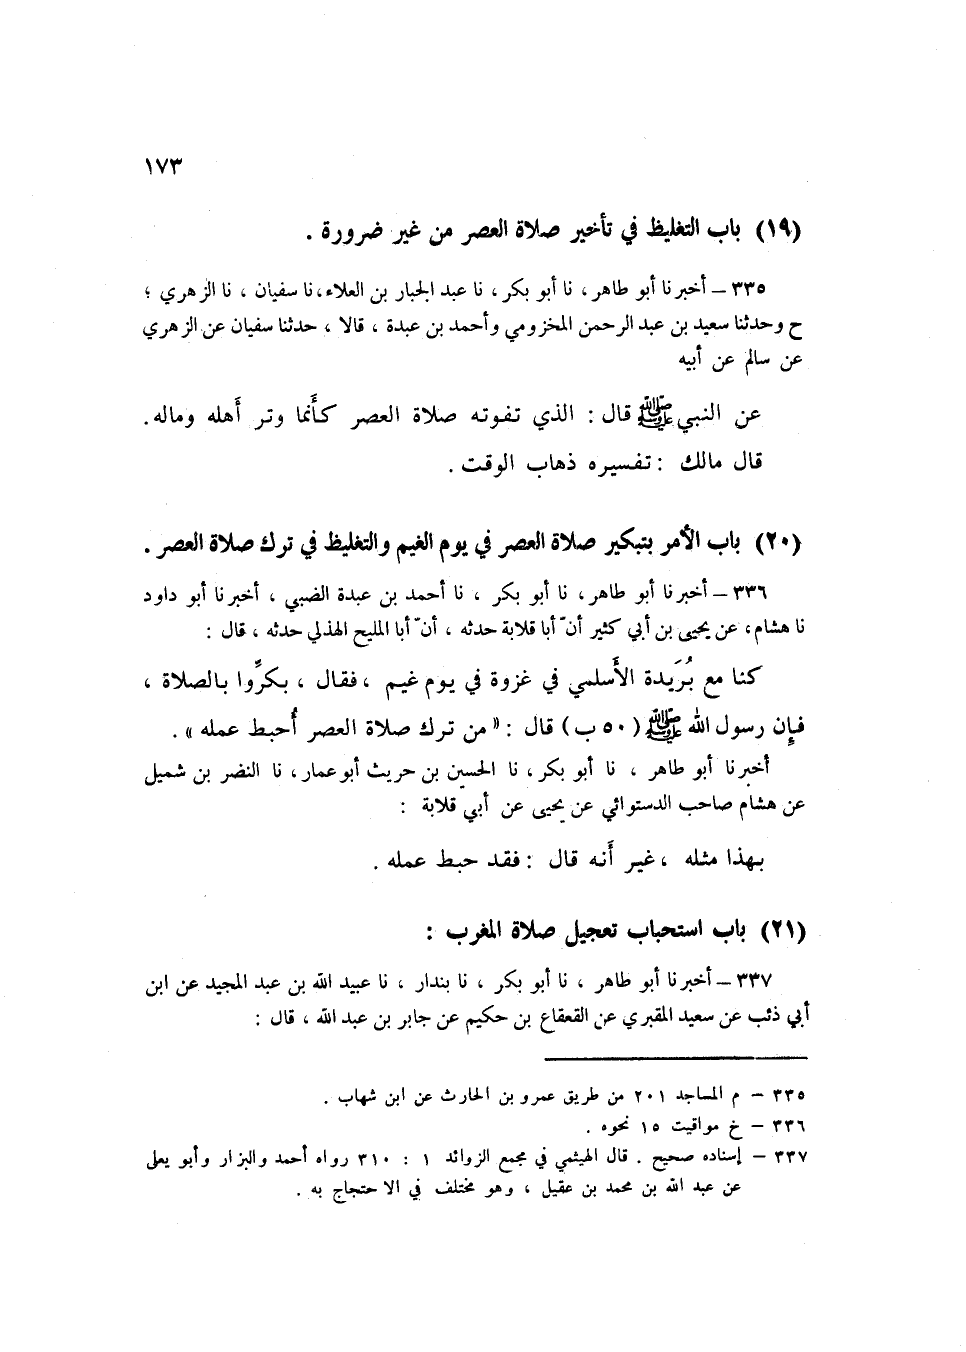 ١٧٣
(١٩) باب التغليظ في تأخير صلاة العصر من غير ضرورة .
٣٣٥ – أخبرنا أبو طاهر، نا أبو بكر، نا عبد الجبار بن العلاء، نا سفيان ، نا الزهري ؛
ح وحدثنا سعيد بن عبد الرحمن المخزومي وأحمد بن عبدة ، قالا ، حدثنا سفيان عن الزهري
عن سالم عن أبيه
عن النبي ﷺ قال : الذي تفوته صلاة العصر كأَنما وتر أَهله وماله .
قال مالك : تفسيره ذهاب الوقت .
(٢٠) باب الأمر بتبكير صلاة العصر في يوم الغيم والتغليظ في ترك صلاة العصر .
٣٣٦ – أخبرنا أبو طاهر، نا أبو بكر ، نا أحمد بن عبدة الضبي ، أخبرنا أبو داود
نا هشام، عن يحيى بن أبي كثير أنّ أبا قلابة حدثه ، أنّ أبا المليح الهذلي حدثه ، قال :
كنا مع بُرَيدة الأَسلمي في غزوة في يوم غيم ، فقال ، بكرِّوا بالصلاة ،
فإِن رسول الله ﷺ (٥٠ ب) قال : «من ترك صلاة العصر أُحبط عمله» .
أخبرنا أبو طاهر ، نا أبو بكر، نا الحسين بن حريث أبو عمار، نا النضر بن شميل
عن هشام صاحب الدستوائي عن يحيى عن أبي قلابة :
بهذا مثله ، غير أَنه قال : فقد حبط عمله .
(٢١) باب استحباب تعجيل صلاة المغرب :
٣٣٧ – أخبرنا أبو طاهر ، نا أبو بكر ، نا بندار ، نا عبيد الله بن عبد المجيد عن ابن
أبي ذئب عن سعيد المقبري عن القعقاع بن حكيم عن جابر بن عبد الله ، قال :
٣٣٥ – م المساجد ٢٠١ من طريق عمرو بن الحارث عن ابن شهاب .
٣٣٦ – خ مواقيت ١٥ نحوه .
٣٣٧ – إسناده صحيح . قال الهيثمي في مجمع الزوائد ١ : ٣١٠ رواه أحمد والبزار وأبو يعلى
عن عبد الله بن محمد بن عقيل ، وهو مختلف في الاحتجاج به .